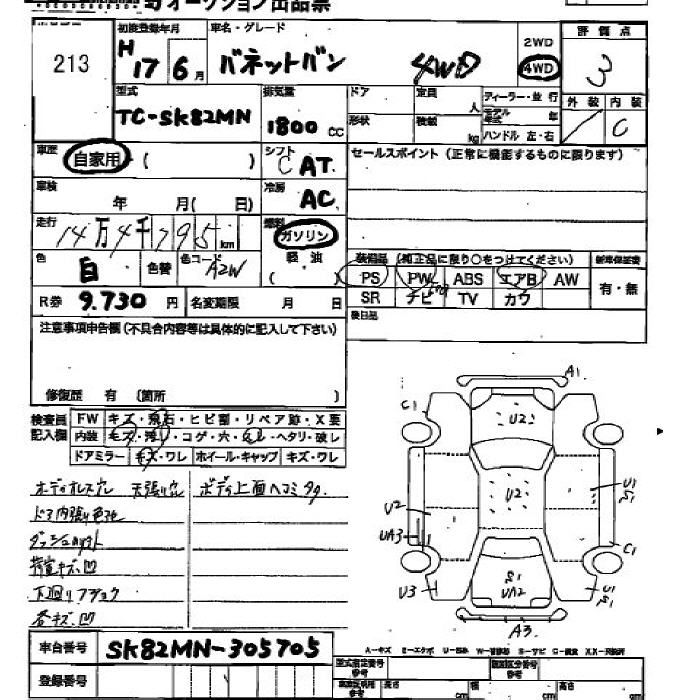 オークション出品票
213
初度登録年月 車名・グレード
H 17 6月 バネットバン 4WD
2WD
4WD
評価点
3
型式 排気量 ドア 定員 人 ディーラー・並行
TC-SK82MN 1800 CC
形状 積載 kg モデル年式 年
ハンドル 左・右
外装 内装
C
車歴 自家用 ( )
シフト C AT
セールスポイント(正常に機能するものに限ります)
車検 年 月( 日)
冷房 AC
走行 14万4千795km
燃料 ガソリン
軽油
( )
色 白 色替 色コード A2W
装備品(純正品に限り○をつけてください) 新車保証書
PS PW ABS エアB AW 有・無
SR ナビ TV カワ
R券 9,730円 名変期限 月 日
後日品
注意事項申告欄(不具合内容等は具体的に記入して下さい)
修復歴 有 (箇所 )
検査員記入欄
FW キズ・飛石・ヒビ割・リペア跡・X要
内装 キズ・汚れ・コゲ・穴・スレ・ヘタリ・破レ
ドアミラー キズ・ワレ ホイール・キャップ キズ・ワレ
オーディオレス穴 天張り穴 ボディ上面ヘコミ多々
ドア内張り
荷室キズ凹
各キズ、凹
A1
C1
U2
U2
U2
UA3
U1
S1
C1
U3
S1
UA2
U1
S1
A3
車台番号 SK82MN-305705
登録番号
A-キズ E-エクボ U-凹み W-補修跡 S-サビ C-腐食 XX-交換済
型式指定番号 参考 類別区分番号 参考
長さ cm 幅 cm 高さ cm